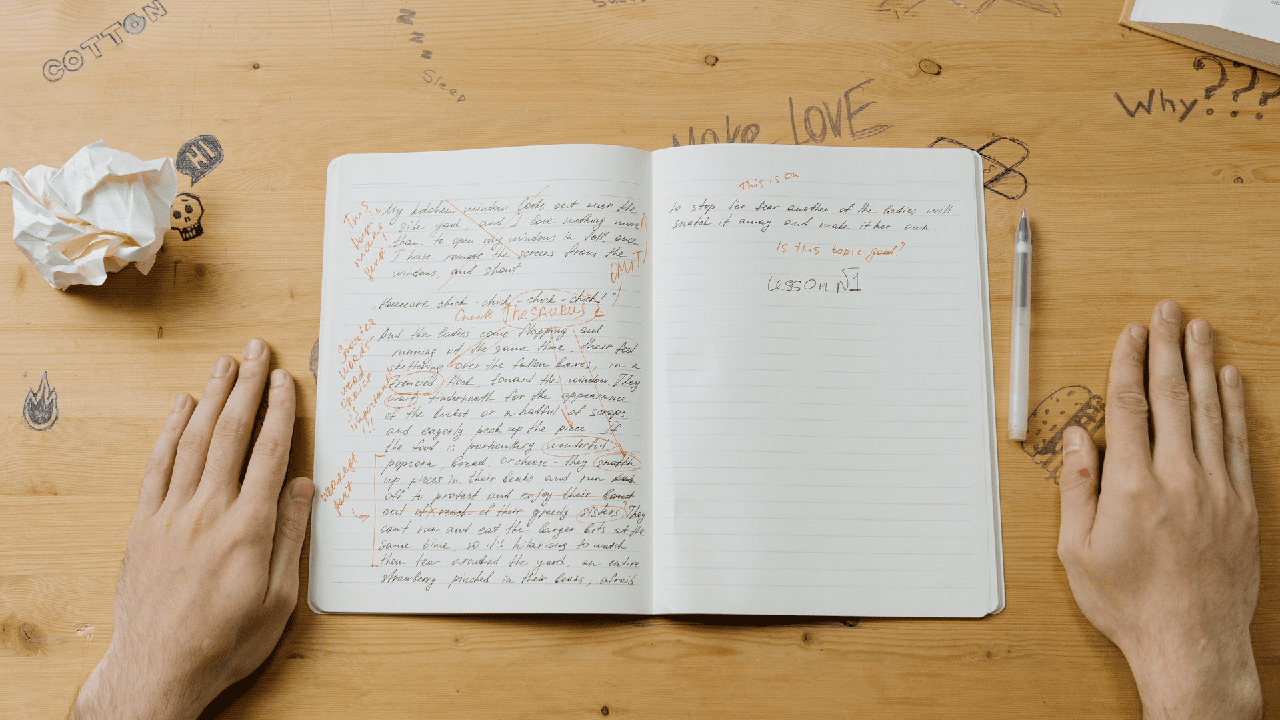 COTTON
Sleep
HI
Make LOVE
Why???
My kitchen window looks out over the
side yard, and I love nothing more
than to open my windows in
I have removed the screens from the
windows, and shout
chick-chick-chick-chick!
check THESAURUS
OMIT
And the ladies come flapping and
running at the same time, their feet
over the fallen leaves, in a
flock toward the window. They
wait underneath for the appearance
of the bucket or a hatful of scraps
and eagerly peck up the If
the food is particularly wonderful
popcorn, bread, or cheese - they snatch
up pieces in their beaks and run
off to protect and enjoy their
and of their greedy sisters They
can't run and eat the larger bits at the
same time, so it's hilarious to watch
them tear around the yard, an entire
strawberry pinched in their beaks, afraid
weakest
part
This is ok
to stop for fear another of the ladies will
snatch it away and make it her own.
Is this topic good?
Lesson №1